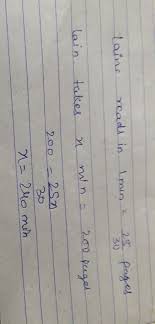 Laine reads in 1 min = 25/30 pages
lain takes x min = 200 pages
200 = 25x/30
x = 240 min